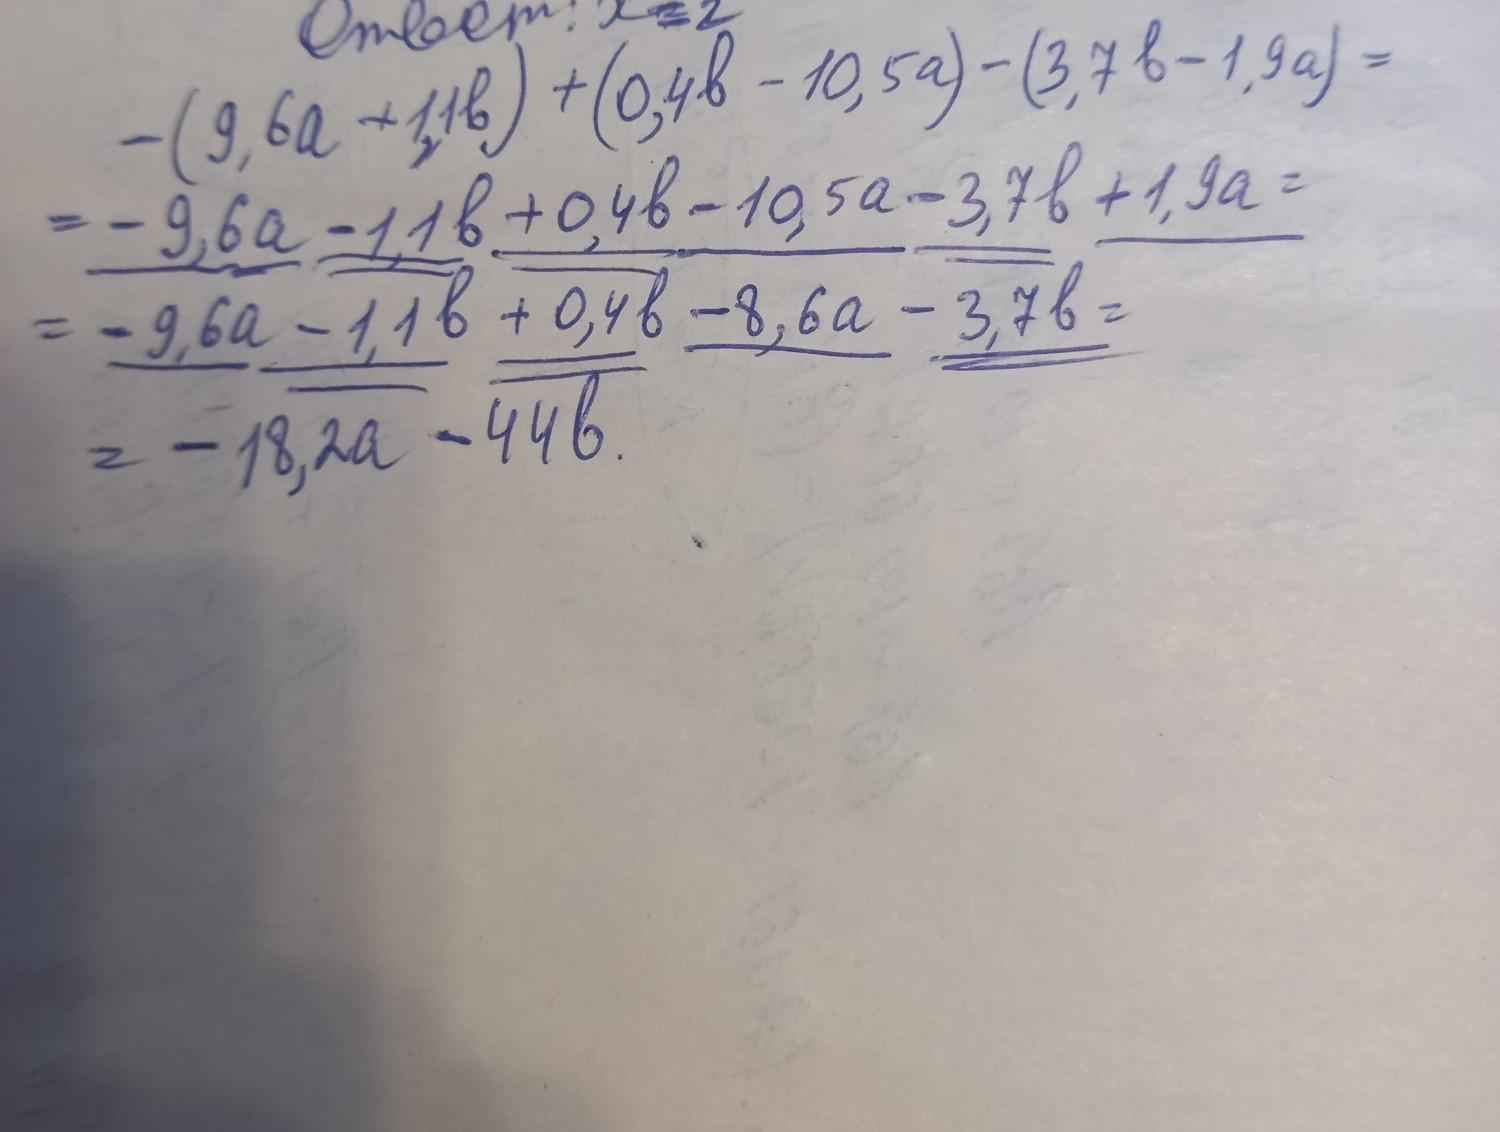 Ответ: x=2
-(9,6a+1,1b)+(0,4b-10,5a)-(3,7b-1,9a)=
=-9,6a-1,1b+0,4b-10,5a-3,7b+1,9a=
=-9,6a-1,1b+0,4b-8,6a-3,7b=
=-18,2a-44b.